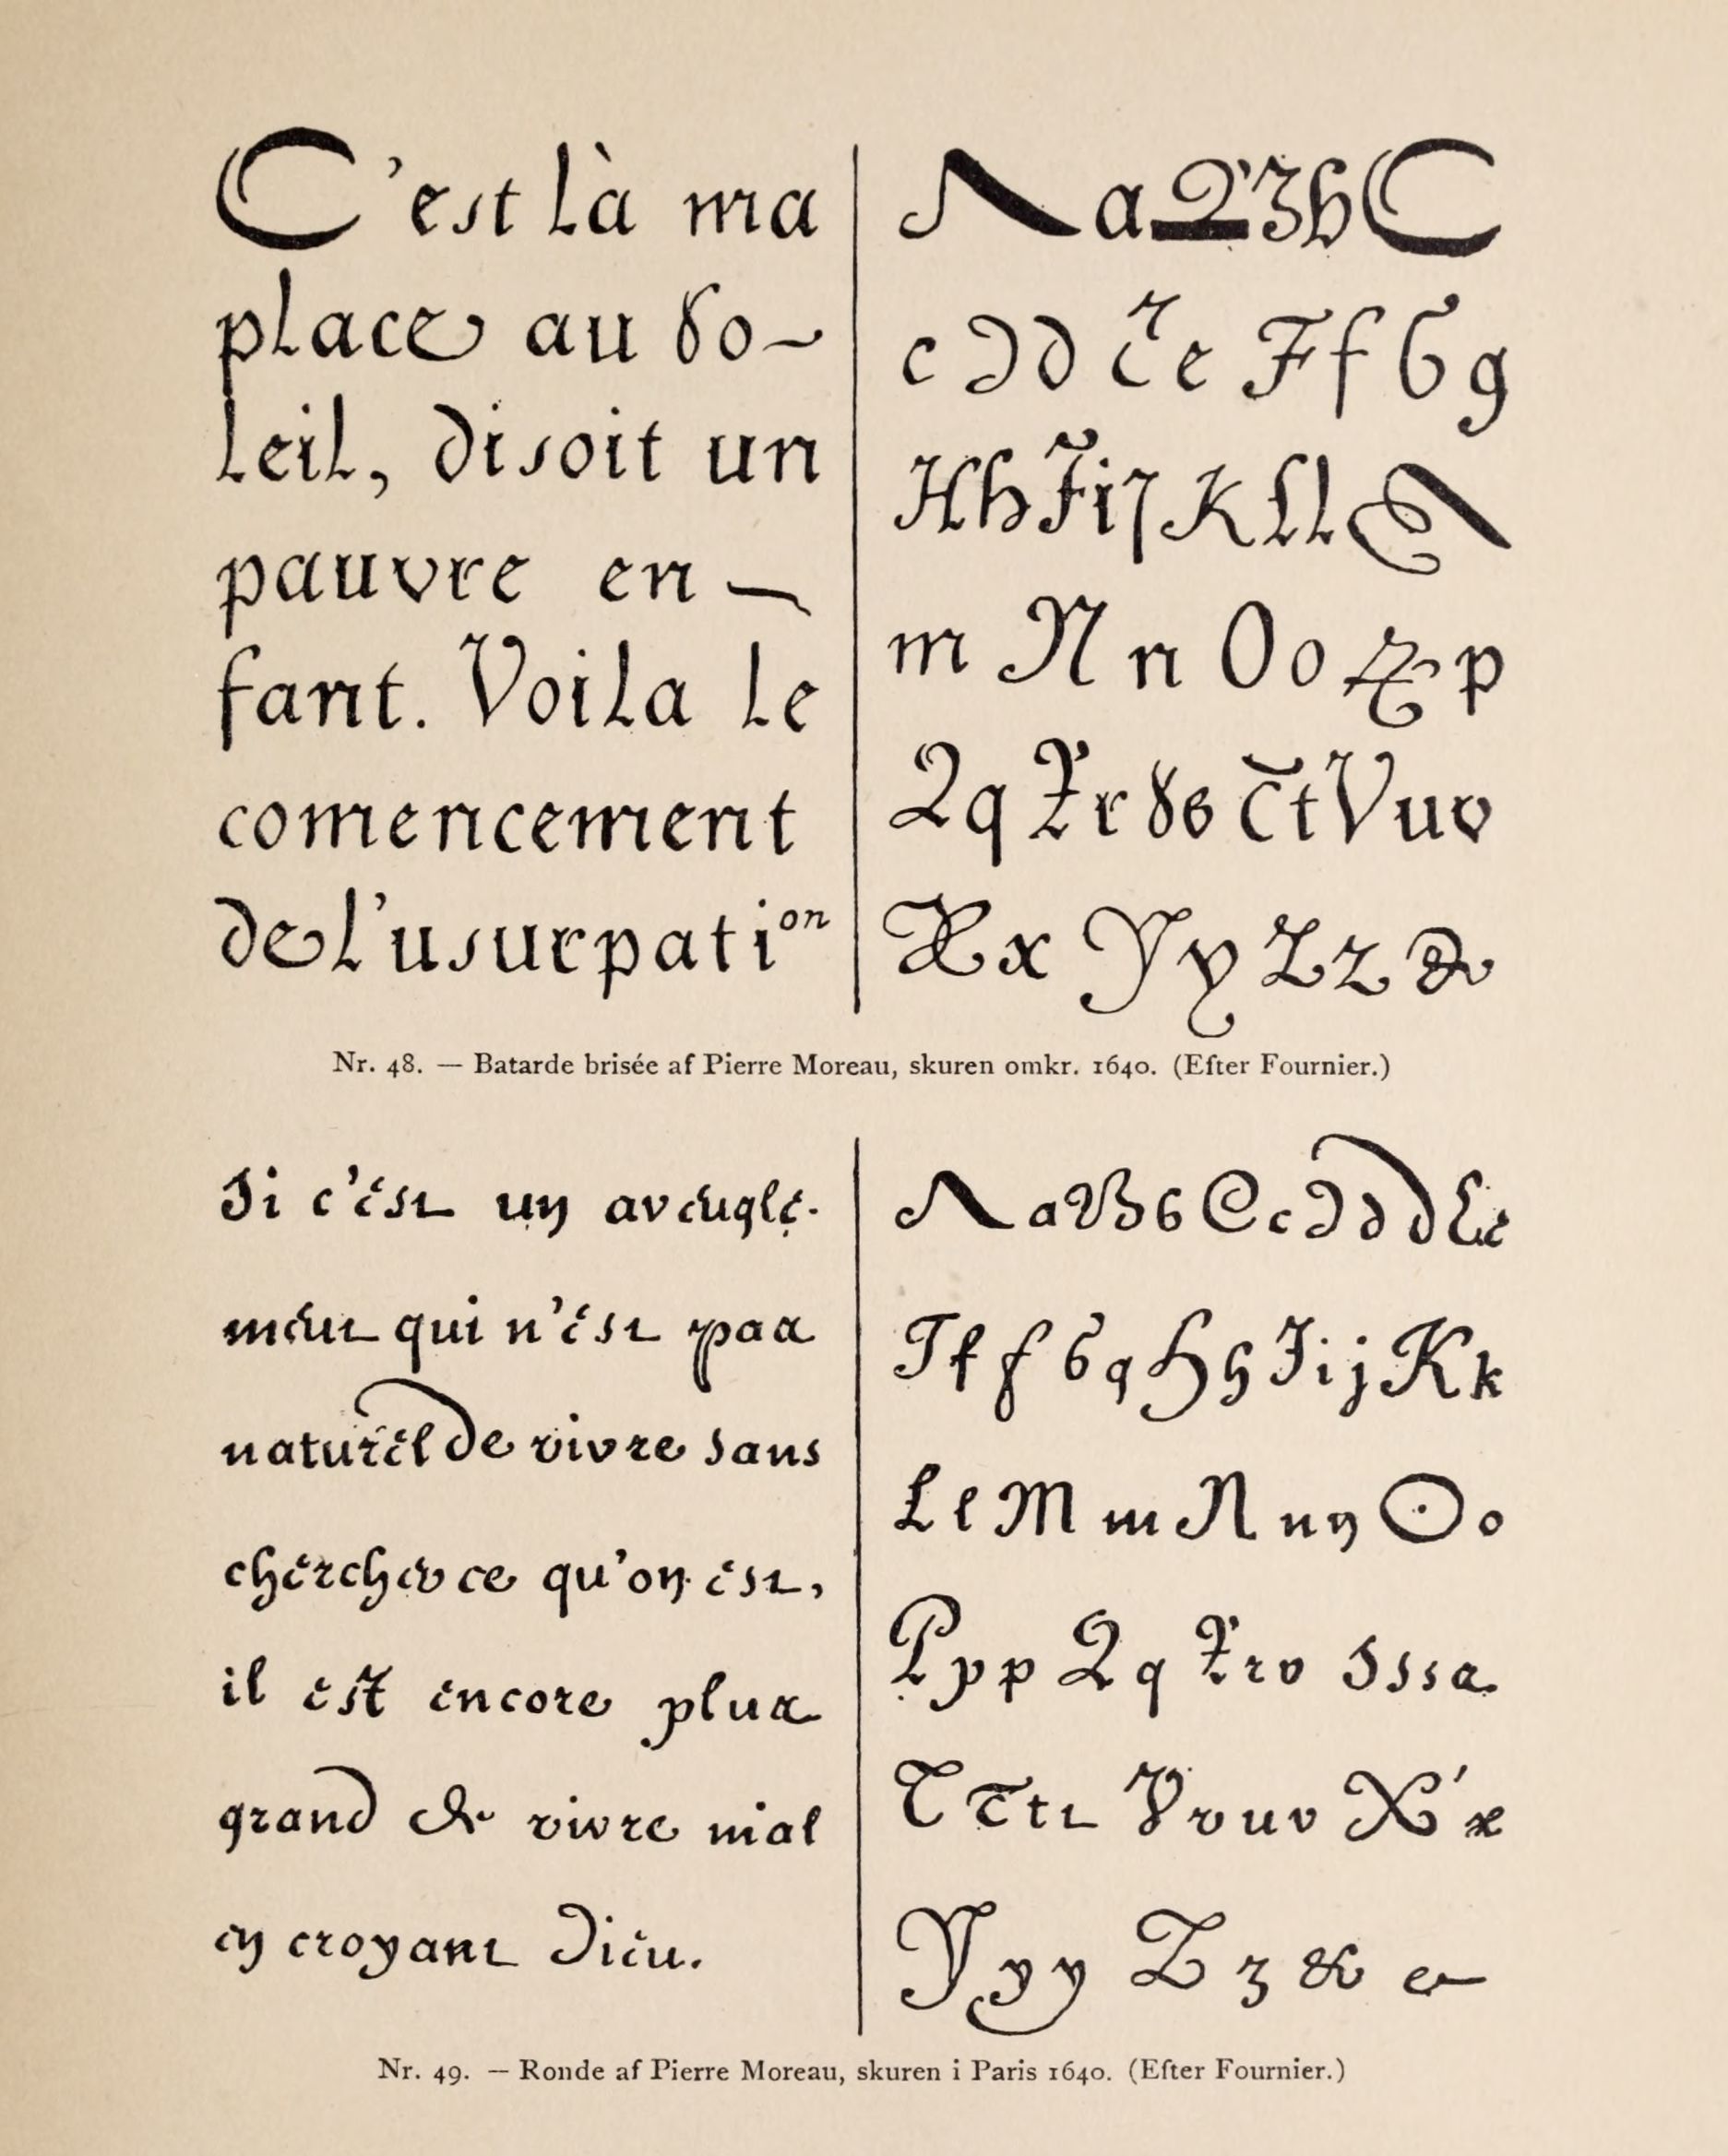 C'est là ma
place au So-
leil, disoit un
pauvre en-
fant. Voila le
comencement
de l'usurpation
A a B b C
c D d E e F f G g
H h I i j K L l M
m N n O o P p
Q q R r S s T t V u v
X x Y y Z z &
Nr. 48. — Batarde brisée af Pierre Moreau, skuren omkr. 1640. (Efter Fournier.)
Si c'est un aveugle-
ment qui n'est pas
naturel de vivre sans
chercher ce qu'on est,
il est encore plus
grand de vivre mal
en croyant Dieu.
A a B b C c D d d E e
F f f G g H h I i j K k
L l M m N n n O o
P p p Q q R r v S s s s
T T t t V v u v X x
Y y y Z z & e
Nr. 49. — Ronde af Pierre Moreau, skuren i Paris 1640. (Efter Fournier.)